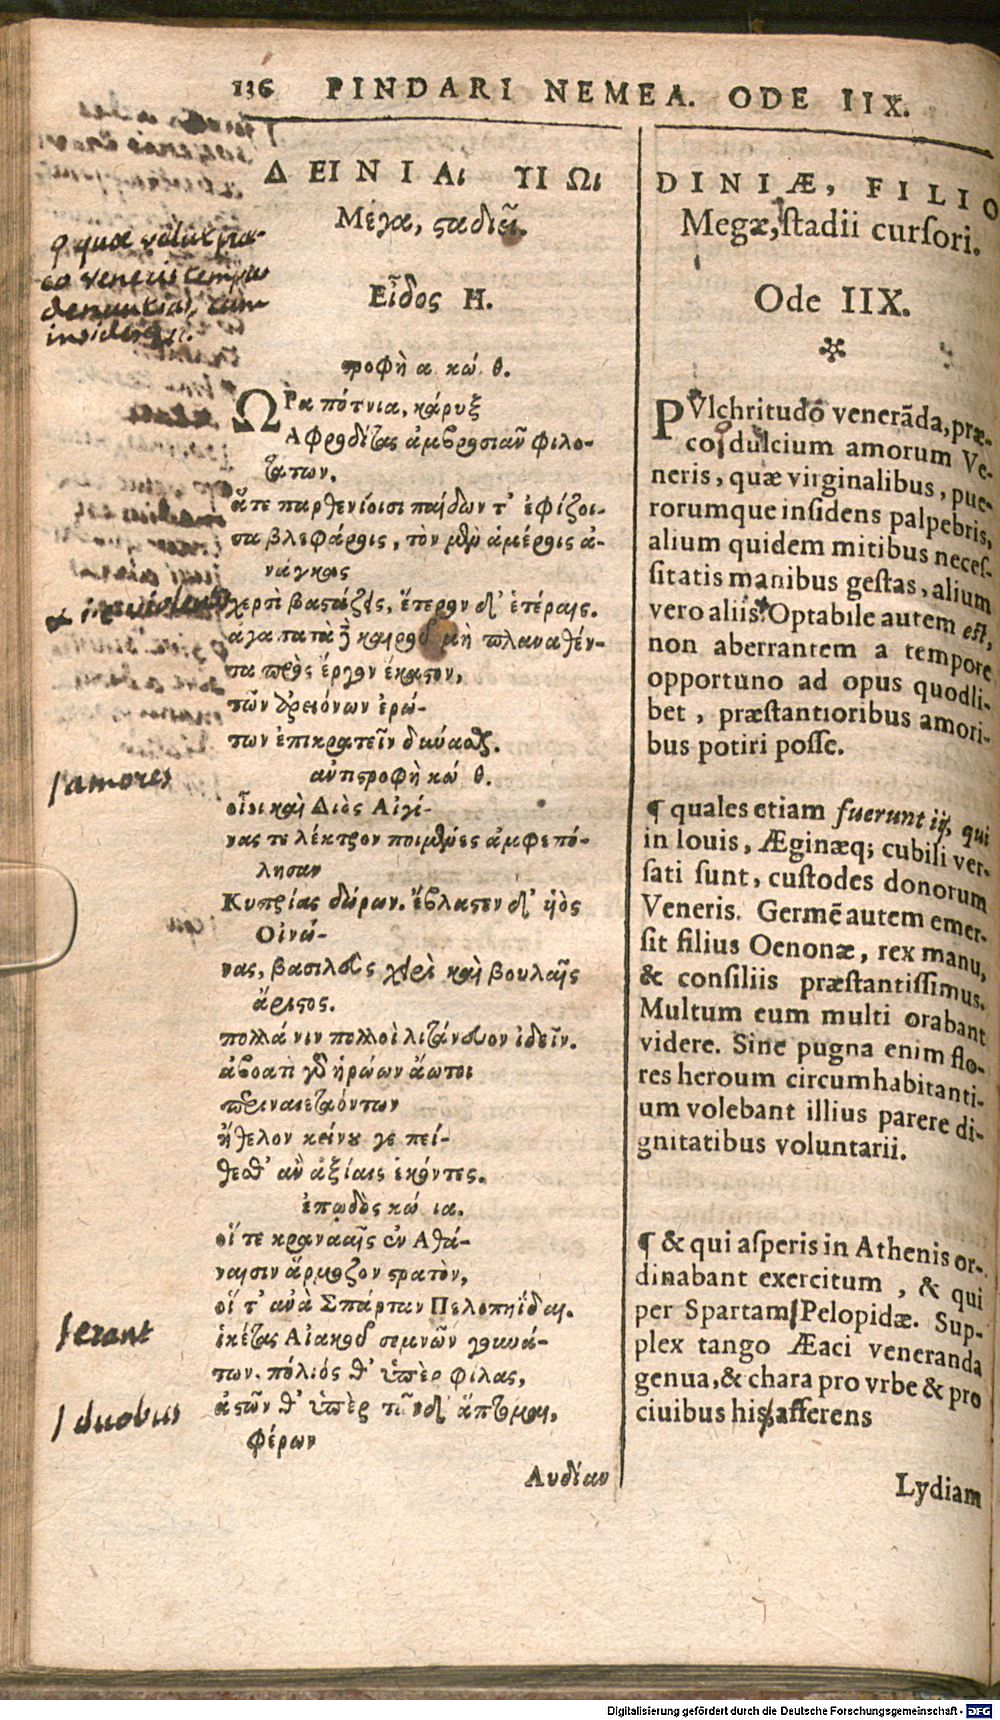 136 PINDARI NEMEA. ODE IIX.
ΔΕΙΝΙΑι ΥΙΩι
Μέγα, ϛαδιεῖ.
Εἶδος Η.
ϛροφὴ α κώ. θ.
ΩΡα πότνια, κάρυξ
Ἀφροδίτας ἀμβροσιᾶν φιλο-
τάτων,
ἅτε παρθενίοισι παίδων τ' ἐφίζοι-
σα βλεφάροις, τὸν μὲν ἁμέροις ἀ-
νάγκας
χερσὶ βαστάζεις, ἕτερον δ' ἑτέραις.
ἀγαπατὰ δὲ καιροῦ μὴ πλαναθέν-
τα πρὸς ἔργον ἕκαστον,
τῶν ἀρειόνων ἐρώ-
των ἐπικρατεῖν δύνασθαι.
ἀντιστροφὴ κώ. θ.
οἷοι καὶ Διὸς Αἰγί-
νας τε λέκτρον ποιμένες ἀμφεπό-
λησαν
Κυπρίας δώρων. ἔβλαστεν δ' ὑὸς
Οἰνώ-
νας, βασιλεὺς χειρὶ καὶ βουλαῖς
ἄριστος.
πολλά νιν πολλοὶ λιτάνευον ἰδεῖν.
ἀβοατὶ γὰρ ἡρώων ἄωτοι
περιναιεταόντων
ἤθελον κείνου γε πεί-
θεσθ' ἀναξίαις ἑκόντες.
ἐπῳδὸς κώ. ια.
οἵ τε κρανααῖς ἐν Ἀθά-
ναισιν ἅρμοζον στρατὸν,
οἵ τ' ἀνὰ Σπάρταν Πελοπηΐδαι.
ἱκέτας Αἰακοῦ σεμνῶν γονά-
των. πόλιός θ' ὑπὲρ φίλας,
ἀστῶν θ' ὑπὲρ τῶνδ' ἅπτομαι,
φέρων
Λυδίαν
DINIÆ, FILIO
Megæ, stadii cursori.
Ode IIX.
PVlchritudo venerāda, præ-
co dulcium amorum Ve-
neris, quæ virginalibus, pue-
rorumque insidens palpebris,
alium quidem mitibus neces-
sitatis manibus gestas, alium
vero aliis. Optabile autem est,
non aberrantem a tempore
opportuno ad opus quodli-
bet, præstantioribus amori-
bus potiri posse.
¶ quales etiam fuerunt ij, qui
in Iouis, Æginæq; cubili ver-
sati sunt, custodes donorum
Veneris. Germē autem emer-
sit filius Oenonæ, rex manu,
& consiliis præstantissimus.
Multum eum multi orabant
videre. Sine pugna enim flo-
res heroum circumhabitanti-
um volebant illius parere di-
gnitatibus voluntarii.
¶ & qui asperis in Athenis or-
dinabant exercitum, & qui
per Spartam Pelopidæ. Sup-
plex tango Æaci veneranda
genua, & chara pro vrbe & pro
ciuibus his, afferens
Lydiam
amores
ferant
duobus
Digitalisierung gefördert durch die Deutsche Forschungsgemeinschaft - DFG